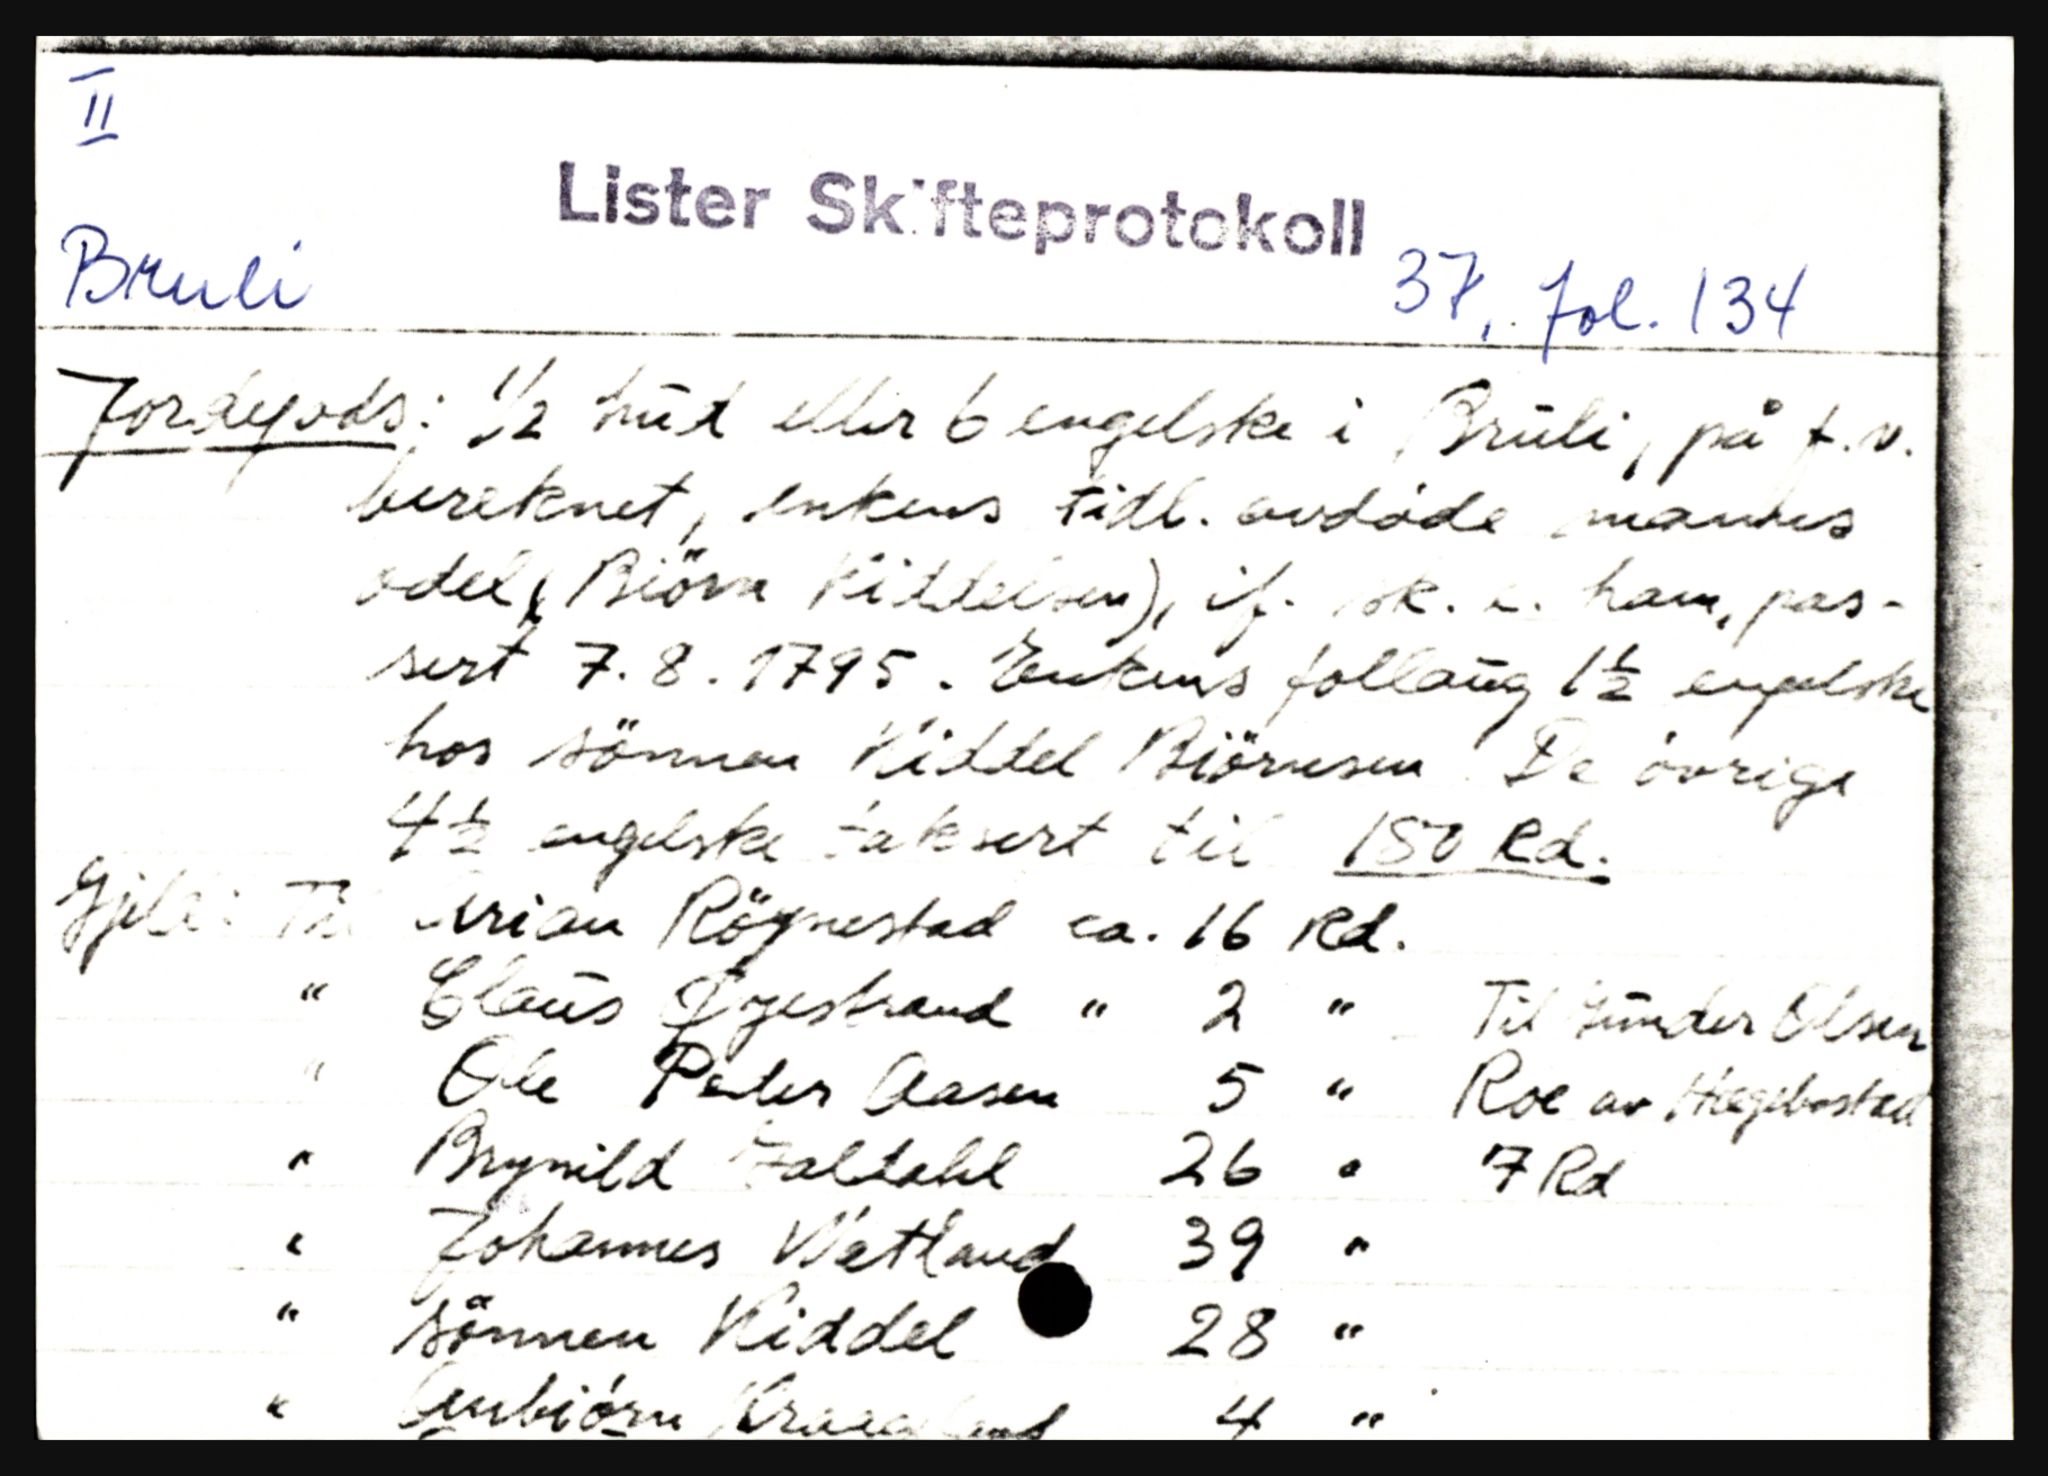 II
Lister Skifteprotokoll
Bruli
37, fol. 134
Jordegods: 1/2 hud eller 6 engelske i Bruli, på f.v.
bereknet, enkens tidl. avdøde mannes
odel (Biörn Kiddelsen), if. sk. e. ham, pas-
sert 7.8.1795. Enkens follaug 1½ engelske
hos sönnen Kiddel Biörnsen. De övrige
4½ engelske taksert til 150 Rd.
Gjeld: Til Arian Röynestad ca. 16 Rd.
" Claus Øyestrand " 2 " Til Gunder Olsen
" Ole Peder Aasen 5 " Roe av Hegebostad
" Brynild 26 " 7 Rd
" Johannes Wetland 39 "
" sönnen Kiddel 28 "
" Anbiörn 4 "